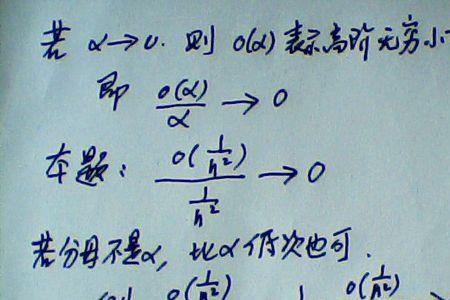 若 α→0. 则 o(α) 表示高阶无穷小
即 o(α)/α → 0
本题: o(1/n²)/(1/n²) → 0
若分母不是α, 比α低次也可.
o(1/n²) 1 o(1/n²)